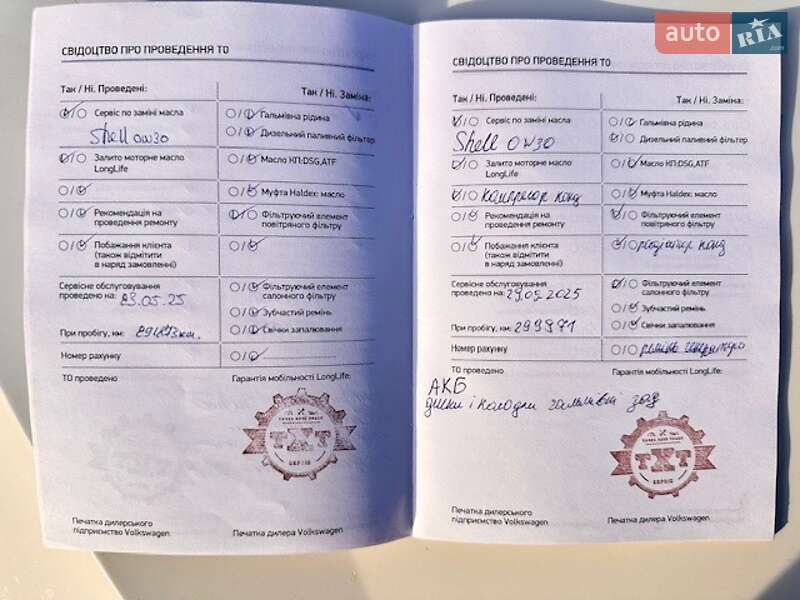 auto RIA.com
СВІДОЦТВО ПРО ПРОВЕДЕННЯ ТО
Так / Ні. Проведені:
Так / Ні. Заміна:
Сервіс по заміні масла
Shell 0w30
Залито моторне масло
LongLife
Рекомендація на
проведення ремонту
Побажання клієнта
(також відмітити
в наряд замовленні)
Сервісне обслуговування
проведено на: 23.05.25
При пробігу, км:
Номер рахунку
Гальмівна рідина
Дизельний паливний фільтр
Масло КП:DSG,ATF
Муфта Haldex: масло
Фільтруючий елемент
повітряного фільтру
Фільтруючий елемент
салонного фільтру
Зубчастий ремінь
Свічки запалювання
ТО проведено
Гарантія мобільності LongLife:
ТХТ
СЕРВІС
Печатка дилерського
підприємство Volkswagen
Печатка дилера Volkswagen
СВІДОЦТВО ПРО ПРОВЕДЕННЯ ТО
Так / Ні. Проведені:
Так / Ні. Заміна:
Сервіс по заміні масла
Shell 0w30
Залито моторне масло
LongLife
Компресор конд
Рекомендація на
проведення ремонту
Побажання клієнта
(також відмітити
в наряд замовленні)
Сервісне обслуговування
проведено на: 29.05.2025
При пробігу, км: 299971
Номер рахунку
Гальмівна рідина
Дизельний паливний фільтр
Масло КП:DSG,ATF
Муфта Haldex: масло
Фільтруючий елемент
повітряного фільтру
радіатор конд
Фільтруючий елемент
салонного фільтру
Зубчастий ремінь
Свічки запалювання
ремінь генератора
ТО проведено
Гарантія мобільності LongLife:
АКБ
диски і колодки гальмівні зад
ТХТ
СЕРВІС
Печатка дилерського
підприємство Volkswagen
Печатка дилера Volkswagen